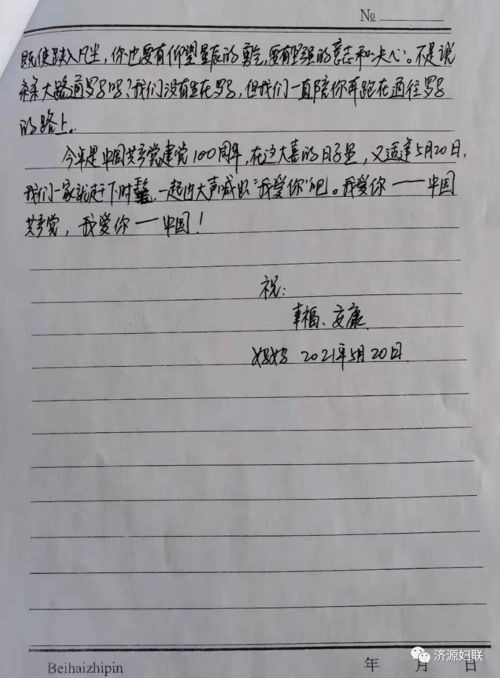 No
既使跌入凡尘，你也要有仰望星辰的勇气，要有坚强的意志和决心。不是说
条条大路通罗马吗？我们没有生在罗马，但我们一直陪你奔跑在通往罗马
的路上。
今年是中国共产党建党100周年，在这大喜的日子里，又适逢5月20日，
我们一家就赶下时髦，一起大声喊出"我爱你"吧。我爱你——中国
共产党，我爱你——中国！
祝：
幸福、安康
妈妈 2021年5月20日
Beihaizhipin 年 月 日
济源妇联